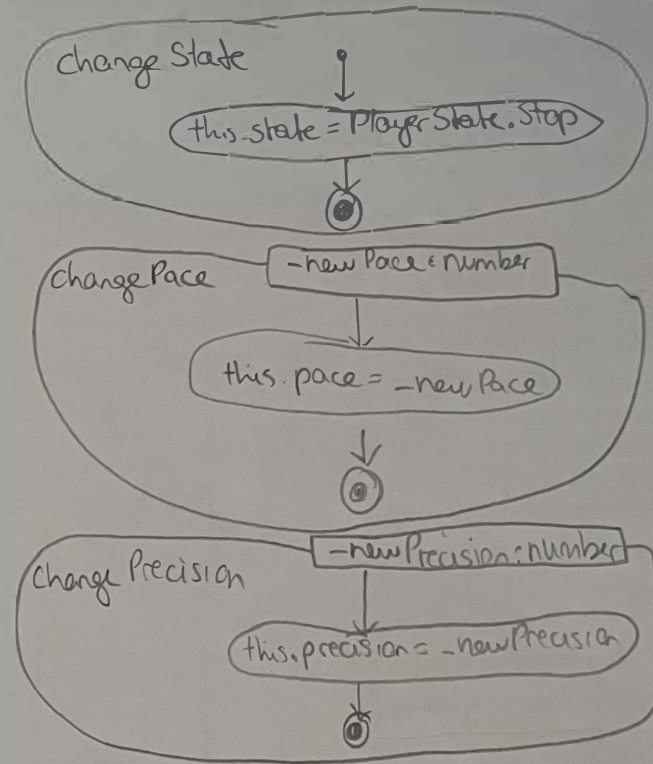 changeState
this.state = PlayerState.Stop
changePace
_newPace: number
this.pace = _newPace
changePrecision
_newPrecision: number
this.precision = _newPrecision